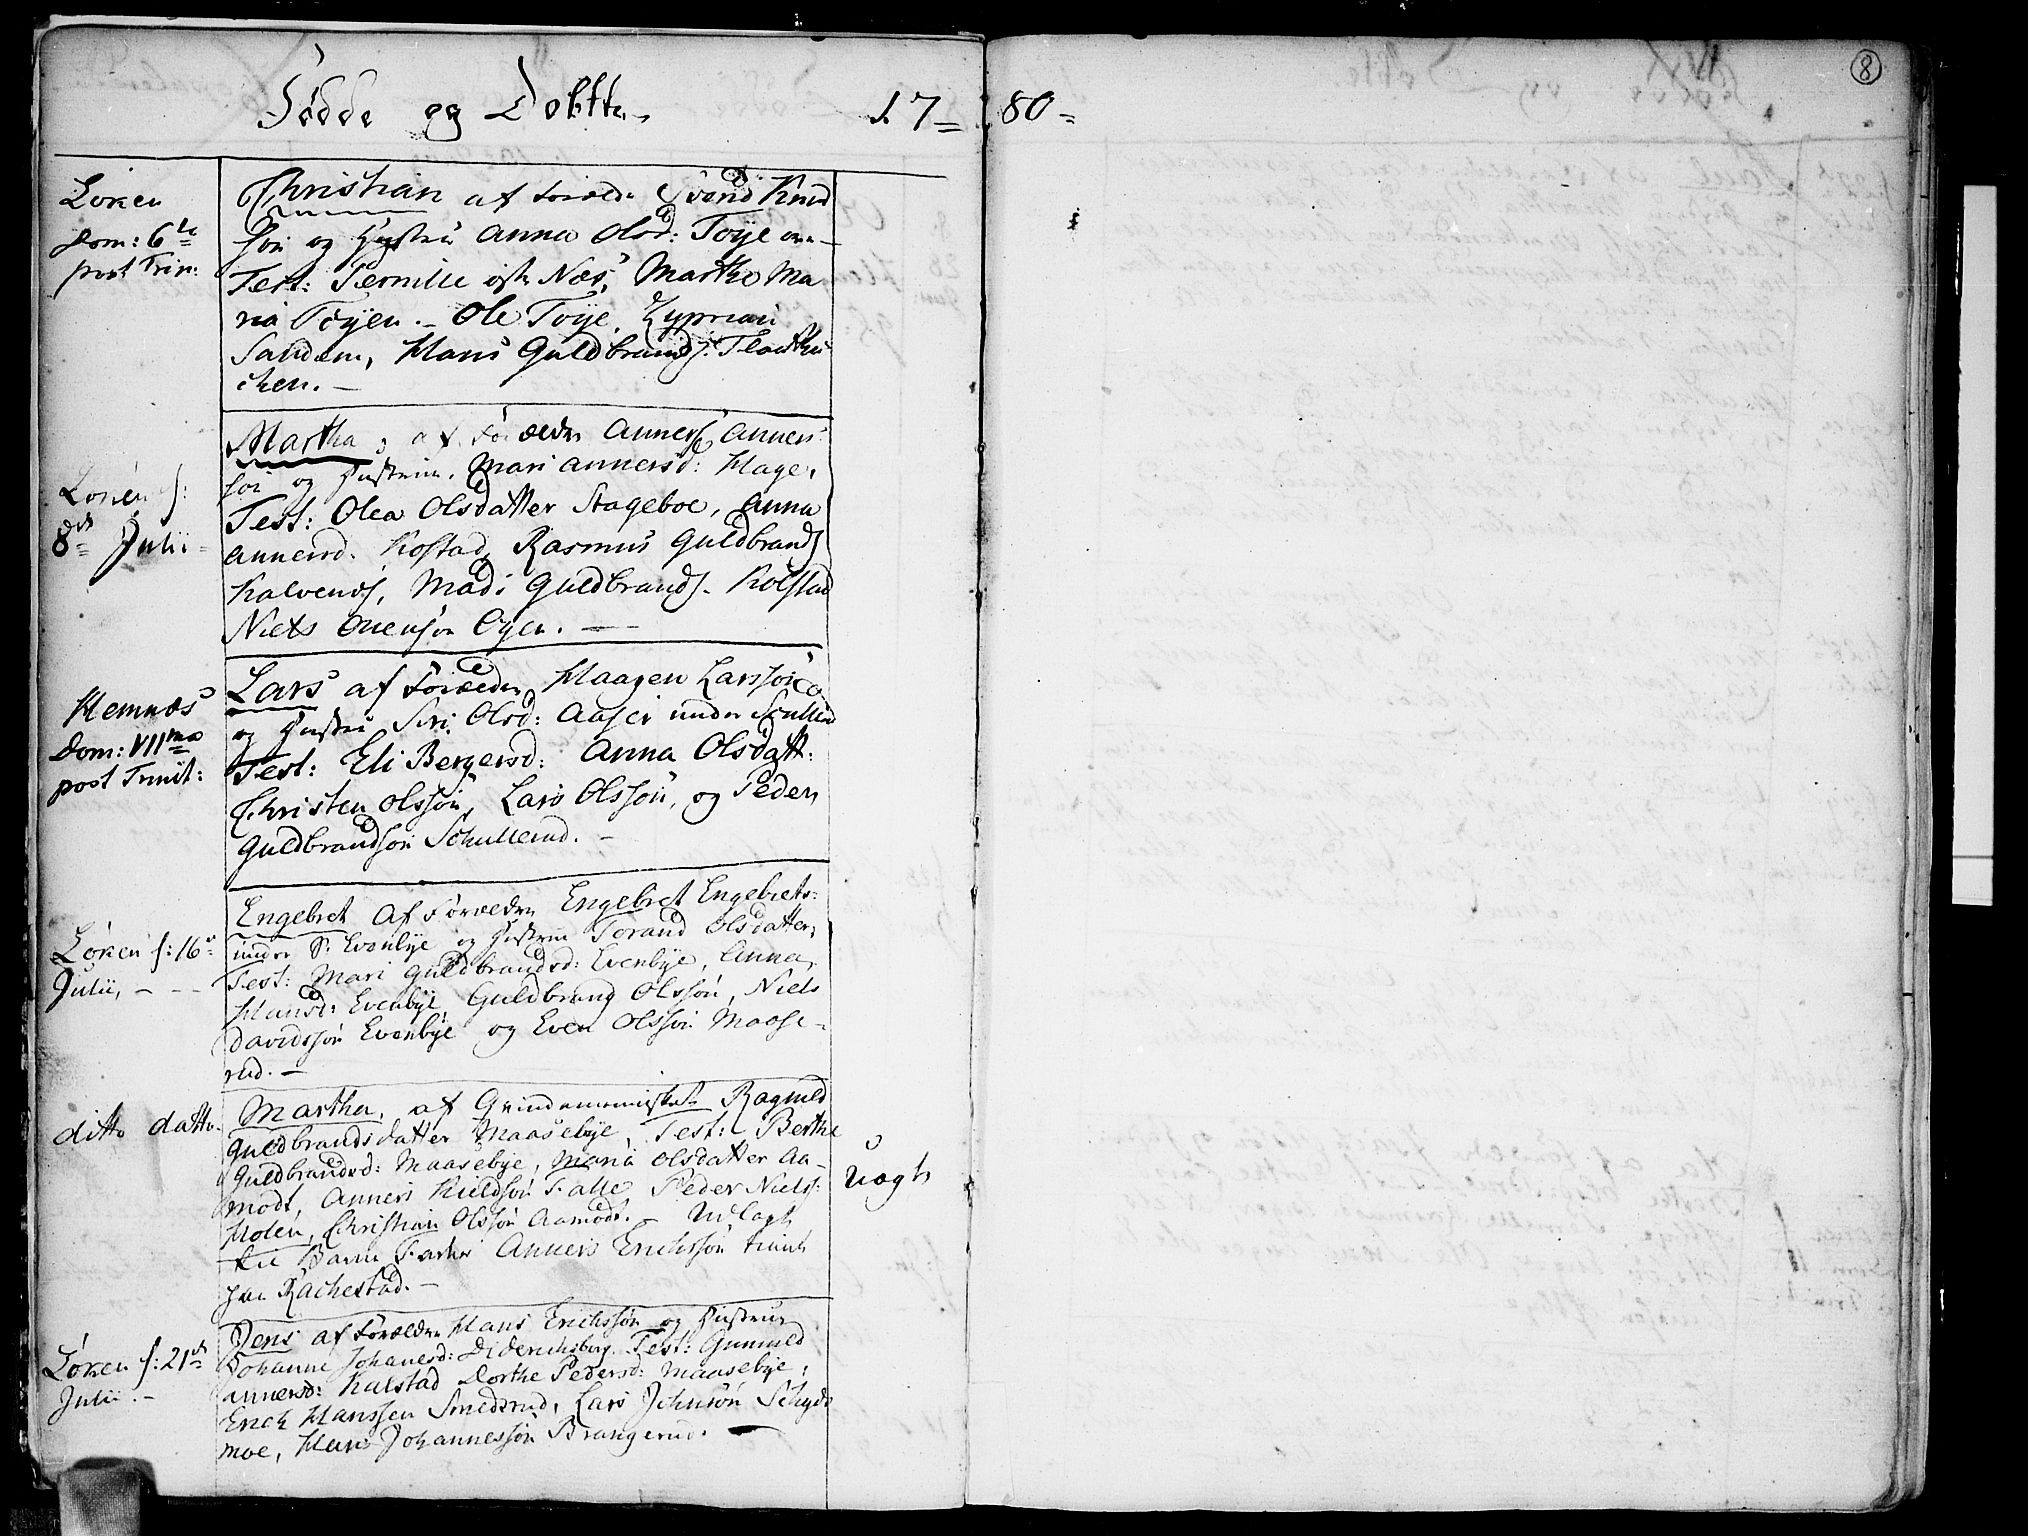 Fødde og Døbtte 17 80
8
Løken
Dom: 6te
post Trin:
Christian af Foræld: Svend Knud
søn og Hustru Anna Olsd: Toÿe
Test: Pernille Næs, Marthe Ma
ria Toÿen. Ole Toÿe, Zyprian
Sandem, Hans Guldbrands:
chen.
Løken f:
8de Julii
Martha, af Forældre Anners Anners
søn og Hustrue, Mari Annersd: Hage,
Test: Olea Olsdatter Stageboe, Anna
Annersd. Kolstad, Rasmus Guldbrands
Kalvenes, Mads Guldbrands. Kolstad
Niels Evensøn Eÿen.
Hemnæs
Dom: VIIma
post Trinit:
Lars af Forældre Haagen Larssøn
og Hustru Siri Olsd: Aaser under Scullerud
Test: Eli Bergersd: Anna Olsdatt:
Christen Olssøn, Lars Olssøn, og Peder
Guldbrandsøn Schullerud.
Løken f: 16de
Julii,
Engebret af Forældre Engebret Engebrets:
under S: Evenbÿe og Hustrue Torand Olsdatter,
Test: Mari Guldbrandsd: Evenbÿe, Anna
Hansd: Evenbÿe, Guldbrand Olssøn, Niels
Davidssøn Evenbÿe og Even Olssøn Maose-
rud.
ditto datto
Martha, af Qvindemennisket Ragnild
Guldbrandsdatter Maasebÿe, Test: Berthe
Guldbrandsd: Maasebÿe, Maria Olsdatter Aa-
modt, Anners Kieldsøn Falle, Peder Niels:
Holen, Christian Olssøn Aamodt. Udlagt
til Barne Fader Anners Erichssøn tient
paa Rachestad.
Uægte
Løken f: 21de
Julii.
Jens af Forældre Hans Erichssøn og Hustrue
Johanne Johanesd: Diderichsberg. Test: Gunnild
Annersd: Kalstad Dorthe Pedersd: Maasebÿe,
Erich Hanssen Smedsrud, Lars Johnsøn Schÿds
moe, Hans Johannessøn Brangerud.